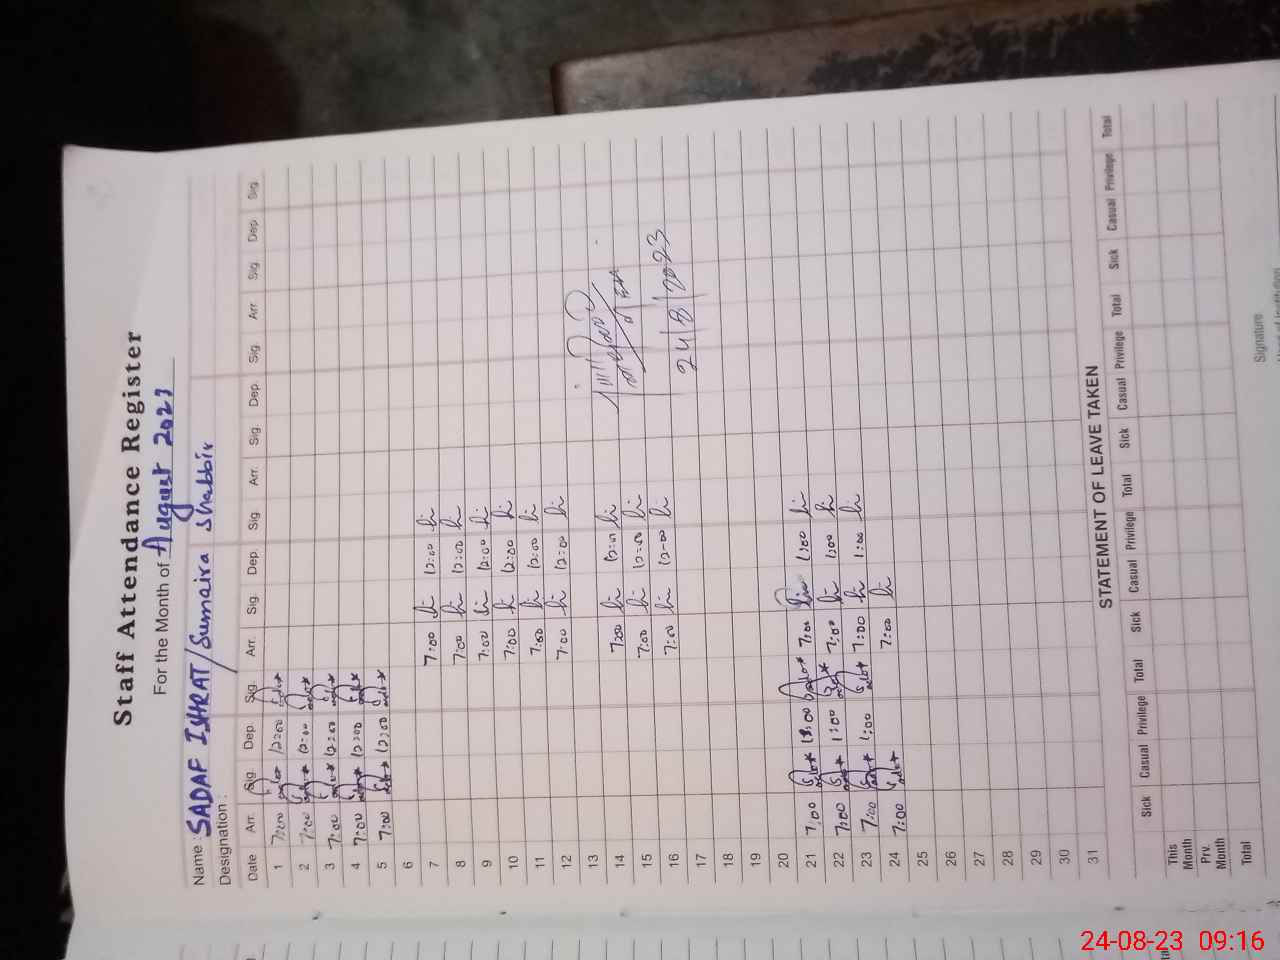 Staff Attendance Register
For the Month of August 2023
Name : SADAF ISHRAT/Sumaira Shabbir
Designation :
Date Arr. Sig. Dep. Sig. Arr. Sig. Dep. Sig. Arr. Sig. Dep. Sig. Arr. Sig. Dep. Sig.
1 7:00 12:00
2 7:00 12:00
3 7:00 12:00
4 7:00 12:00
5 7:00 12:00
6
7 7:00 12:00
8 7:00 12:00
9 7:00 12:00
10 7:00 12:00
11 7:00 12:00
12 7:00 12:00
13
14 7:00 12:00
15 7:00 12:00
16 7:00 12:00
24/8/2023
17
18
19
20
21 7:00 1:00 7:00 1:00
22 7:00 1:00 7:00 1:00
23 7:00 1:00 7:00 1:00
24 7:00 7:00
25
26
27
28
29
30
31
STATEMENT OF LEAVE TAKEN
Sick Casual Privilege Total Sick Casual Privilege Total Sick Casual Privilege Total Sick Casual Privilege Total
This Month
Prv. Month
Total
Signature
24-08-23 09:16